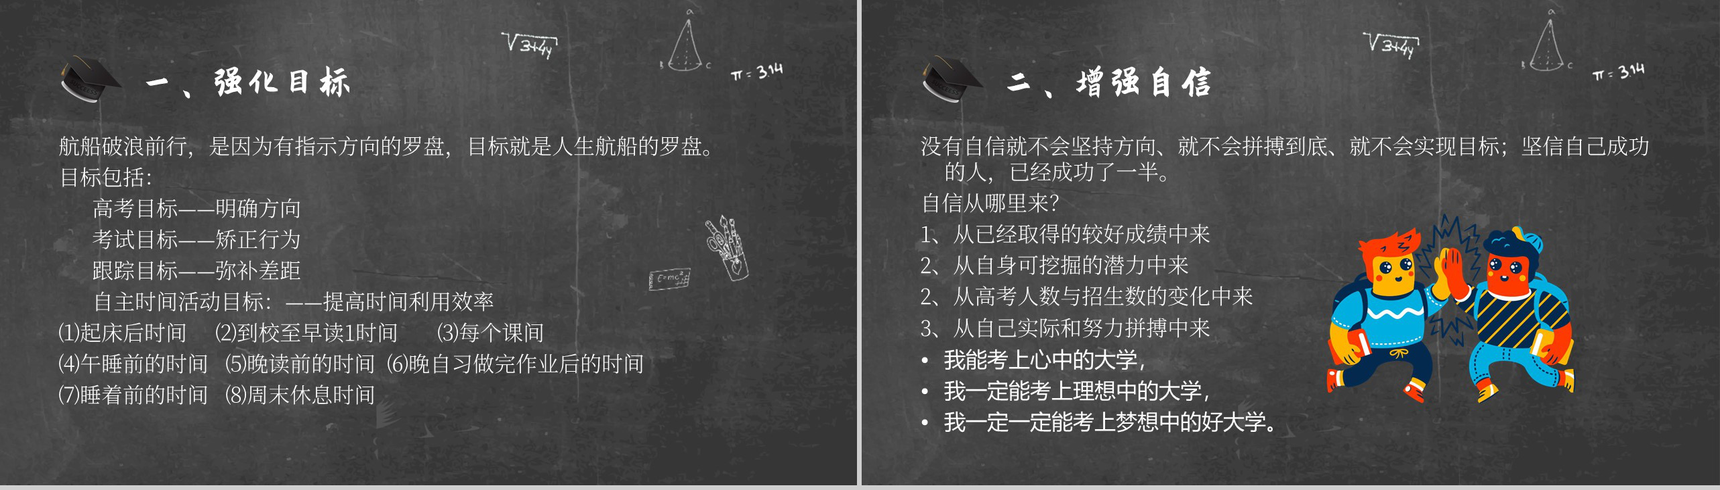 一、强化目标
√3+4y
A
B
C
π = 3.14
航船破浪前行，是因为有指示方向的罗盘，目标就是人生航船的罗盘。
目标包括：
高考目标——明确方向
考试目标——矫正行为
跟踪目标——弥补差距
自主时间活动目标：——提高时间利用效率
⑴起床后时间 ⑵到校至早读1时间 ⑶每个课间
⑷午睡前的时间 ⑸晚读前的时间 ⑹晚自习做完作业后的时间
⑺睡着前的时间 ⑻周末休息时间
E=mc²
二、增强自信
√3+4y
A
B
C
π = 3.14
没有自信就不会坚持方向、就不会拼搏到底、就不会实现目标；坚信自己成功
的人，已经成功了一半。
自信从哪里来？
1、从已经取得的较好成绩中来
2、从自身可挖掘的潜力中来
2、从高考人数与招生数的变化中来
3、从自己实际和努力拼搏中来
• 我能考上心中的大学，
• 我一定能考上理想中的大学，
• 我一定一定能考上梦想中的好大学。